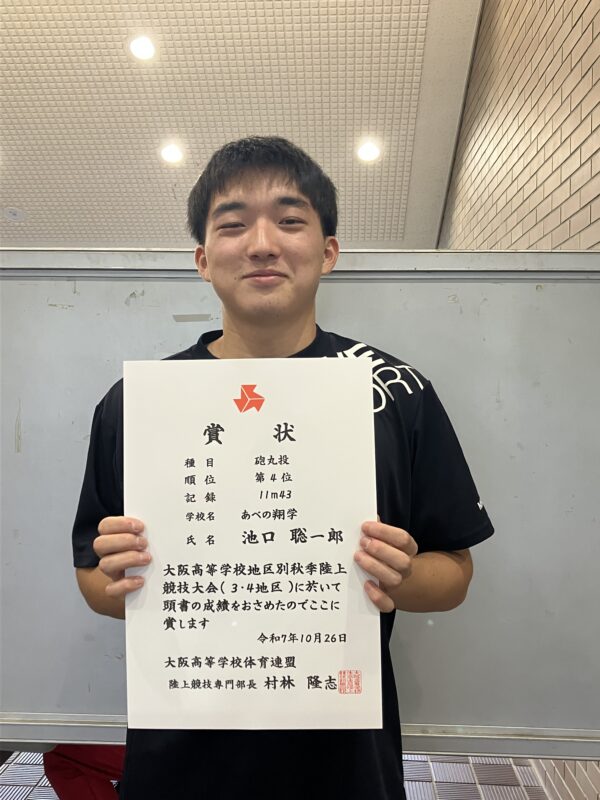 賞 状
種 目 砲丸投
順 位 第 4 位
記 録 11m43
学校名 あべの翔学
氏 名 池口 聡一郎
大阪高等学校地区別秋季陸上
競技大会(3・4地区)に於いて
頭書の成績をおさめたのでここに
賞します
令和7年10月26日
大阪高等学校体育連盟
陸上競技専門部長 村林 隆志